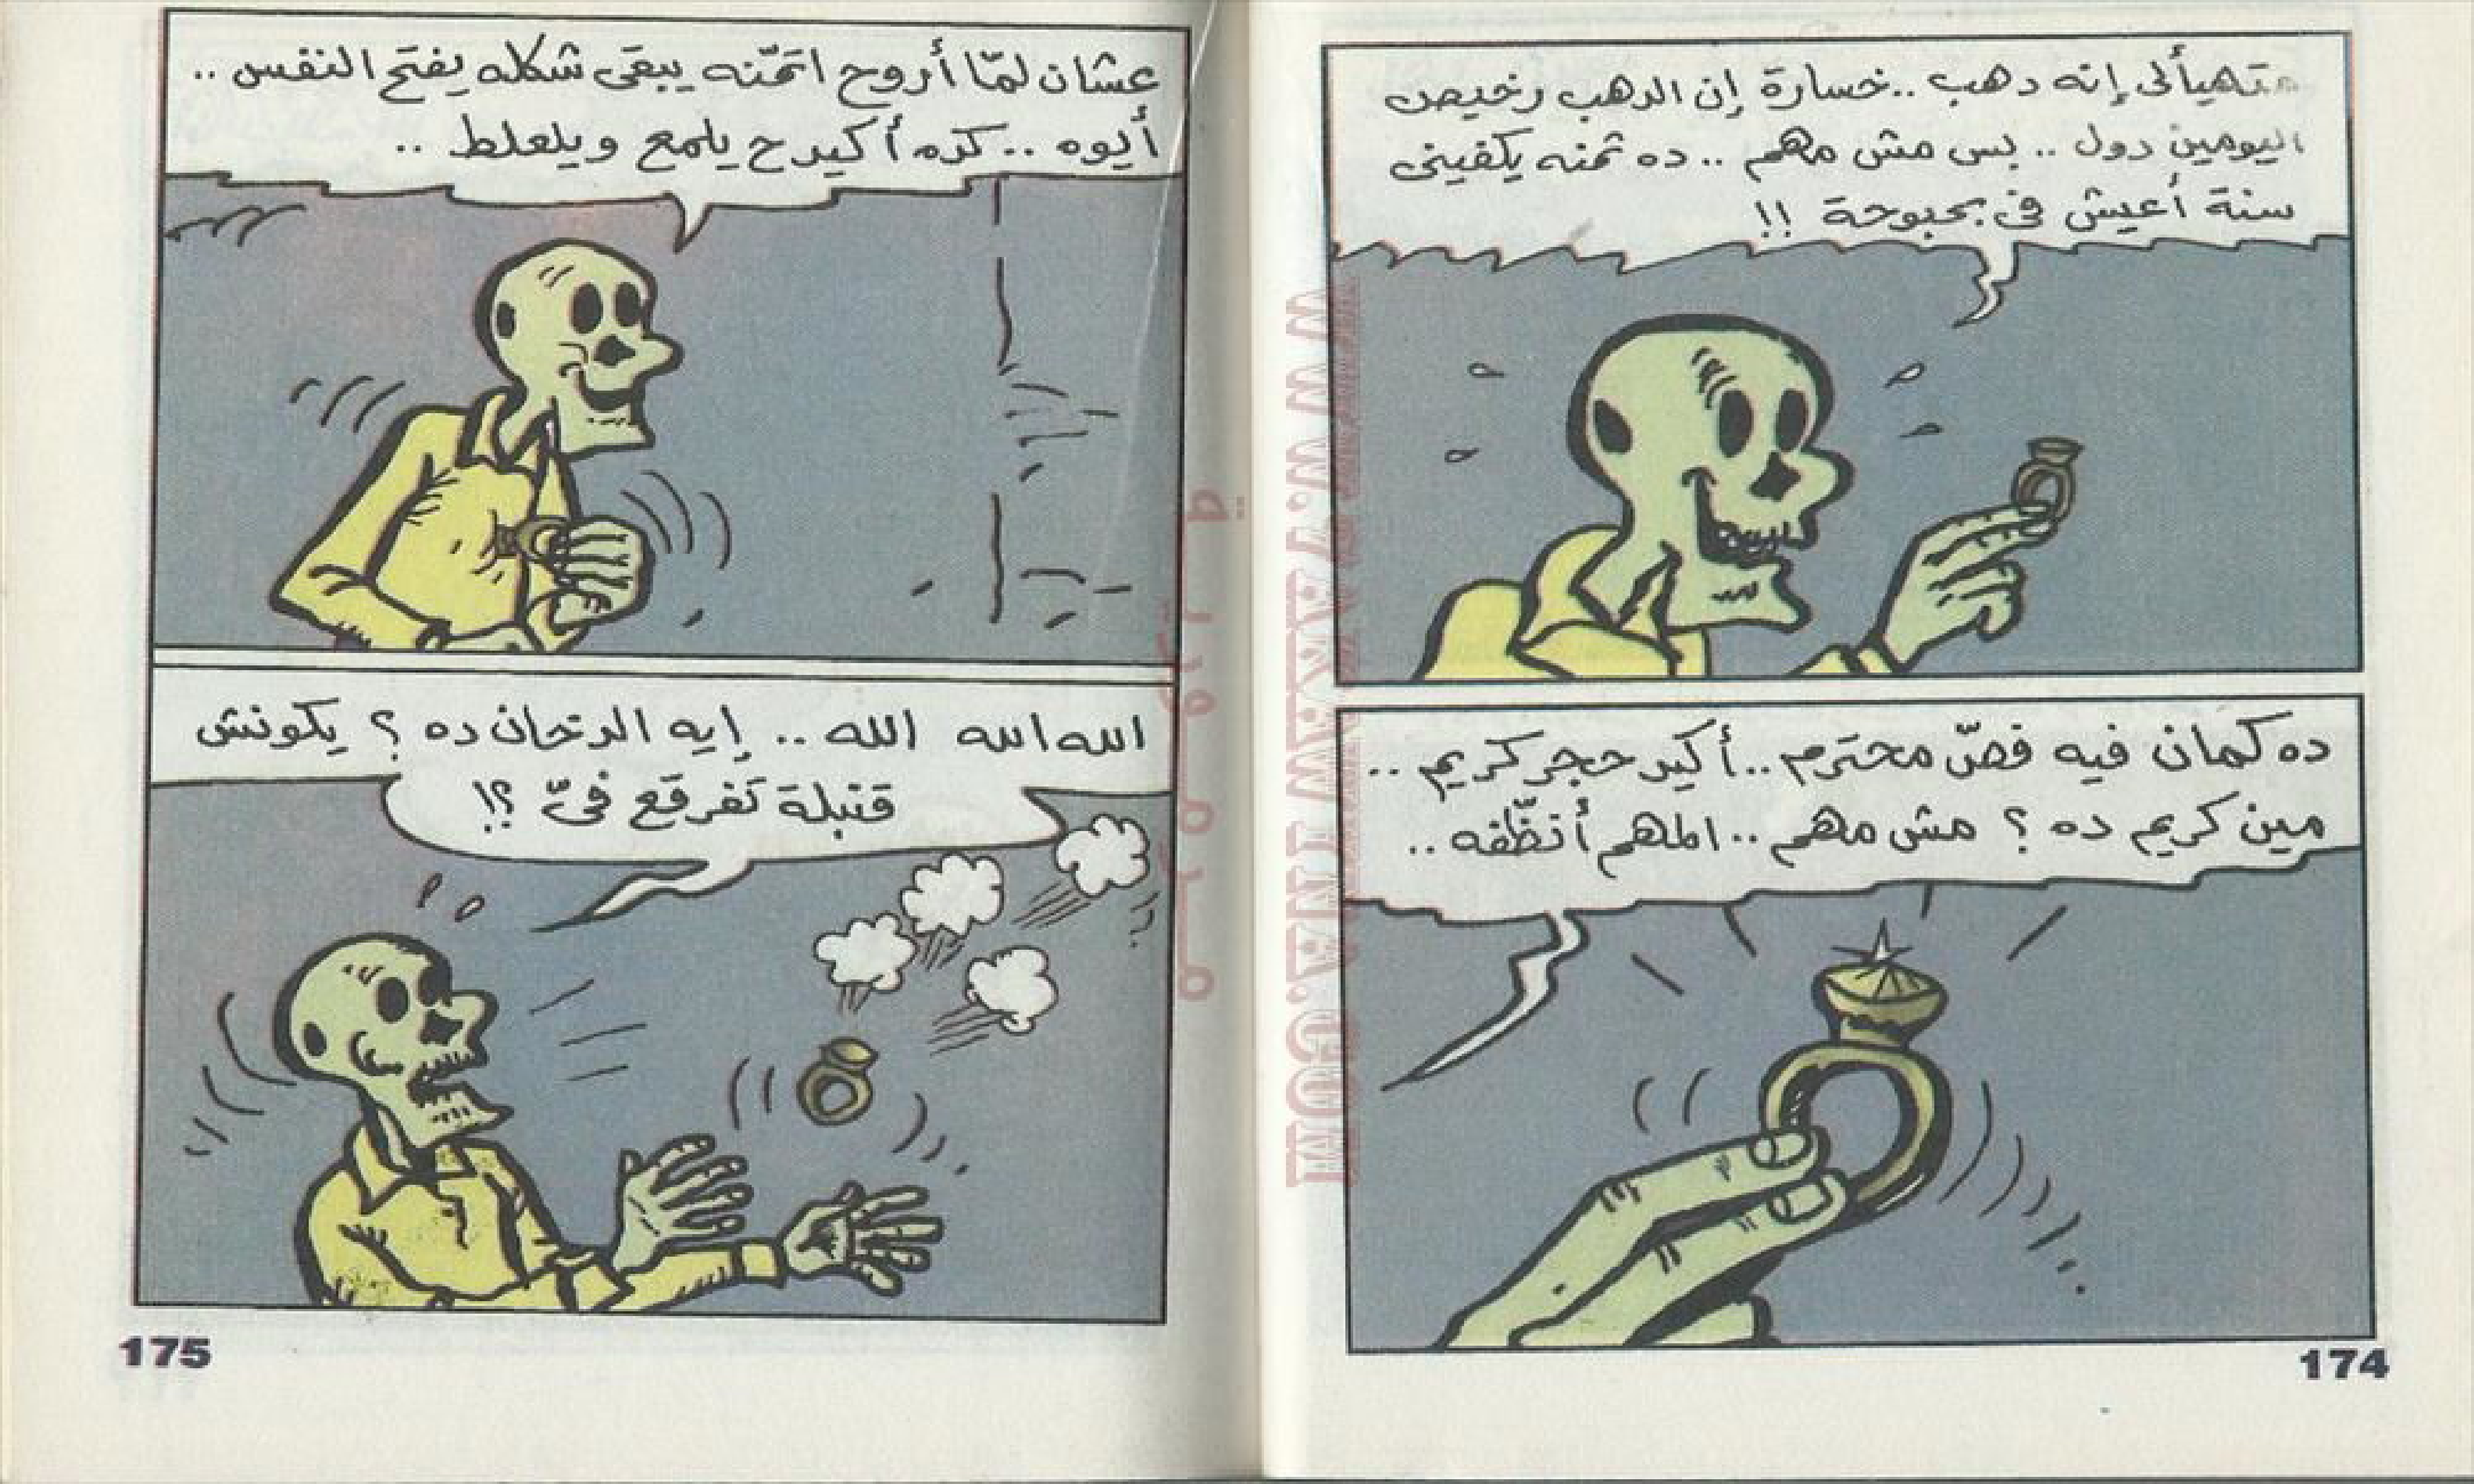 متهيألى إنه دهب ..خسارة إن الدهب رخيص
اليومين دول .. بس مش مهم .. ده ثمنه يكفينى
سنة أعيش فى بحبوحة !!
ده كمان فيه فصّ محترم .. أكيد حجر كريم ..
مين كريم ده ؟ مش مهم .. المهم أنظّفه ..
174
عشان لمّا أروح اتمّنه يبقى شكله يفتح النفس ..
أيوه .. كده أكيد ح يلمع ويلعلط ..
الله الله الله .. إيه الدخان ده ؟ يكونش
قنبلة تفرقع فىّ ؟!
175